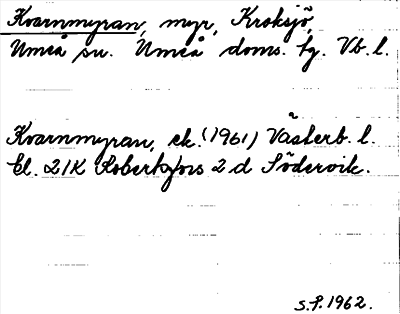 Kvarnmyran, myr, Kroksjö,
Umeå sn. Umeå doms. hg. Vb. l.
Kvarnmyran, ek. (1961) Västerb. l.
bl. 21K Robertsfors 2 d Södervik.
S.P. 1962.